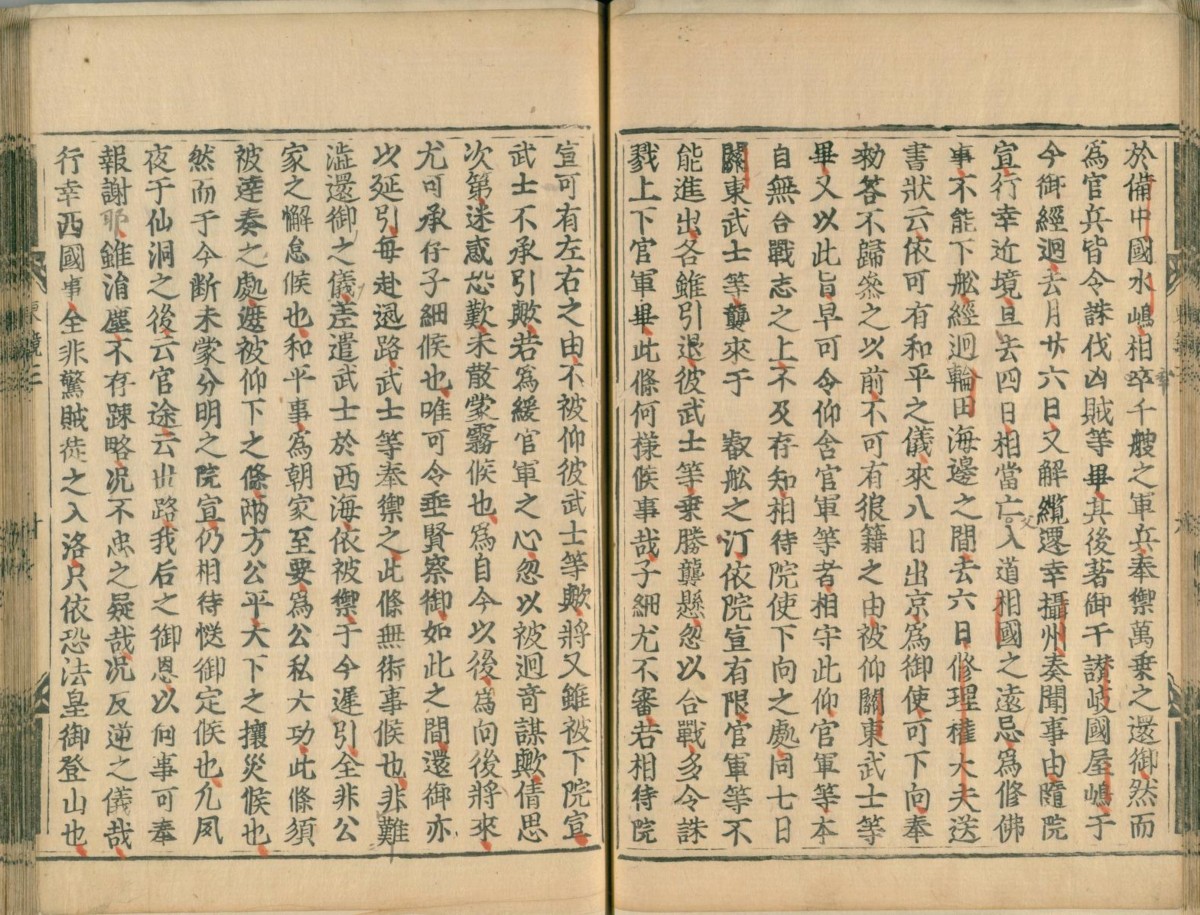 於備中國水嶋相卒千艘之軍兵奉禦萬乗之還御然而
為官兵皆令誅伐凶賊等畢其後著御于讃岐國屋嶋于
今御經迴去月廿六日又解纜遷幸攝州奏聞事由隨院
宣行幸近境且去四日相當亡父入道相國之遠忌為修佛
事不能下舩經迴輪田海邊之間去六日修理權大夫送
書狀云依可有和平之儀來八日出京為御使可下向奉
勑答不歸參之以前不可有狼籍之由被仰關東武士等
畢又以此旨早可令仰含官軍等者相守此仰官軍等本
自無合戰志之上不及存知相待院使下向之處同七日
關東武士等襲來于叡舩之汀依院宣有限官軍等不
能進出各雖引退彼武士等乗勝襲懸忽以合戰多令誅
戮上下官軍畢此條何樣候事哉子細尤不審若相待院
宣可有左右之由不被仰彼武士等歟將又雖被下院宣
武士不承引歟若為緩官軍之心忽以被迴奇謀歟倩思
次第迷惑恐歎未散蒙霧候也為自今以後為向後將來
尤可承存子細候也唯可令垂賢察御如此之間還御亦
以延引每赴還路武士等奉禦之此條無術事候也非難
澁還御之儀差遣武士於西海依被禦于今遲引全非公
家之懈怠候也和平事為朝家至要為公私大功此條須
被達奏之處遮被仰下之條兩方公平天下之攘災候也
然而于今斷未蒙分明之院宣仍相待慥御定候也凡夙
夜于仙洞之後云官途云世路我后之御恩以何事可奉
報謝耶雖涓塵不存疎略况不忠之疑哉况反逆之儀哉
行幸西國事全非驚賊徒之入洛只依恐法皇御登山也